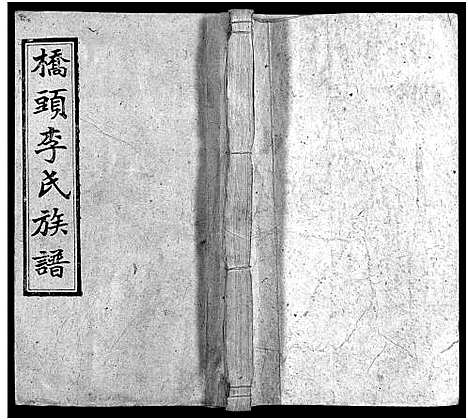 橋頭李氏族譜